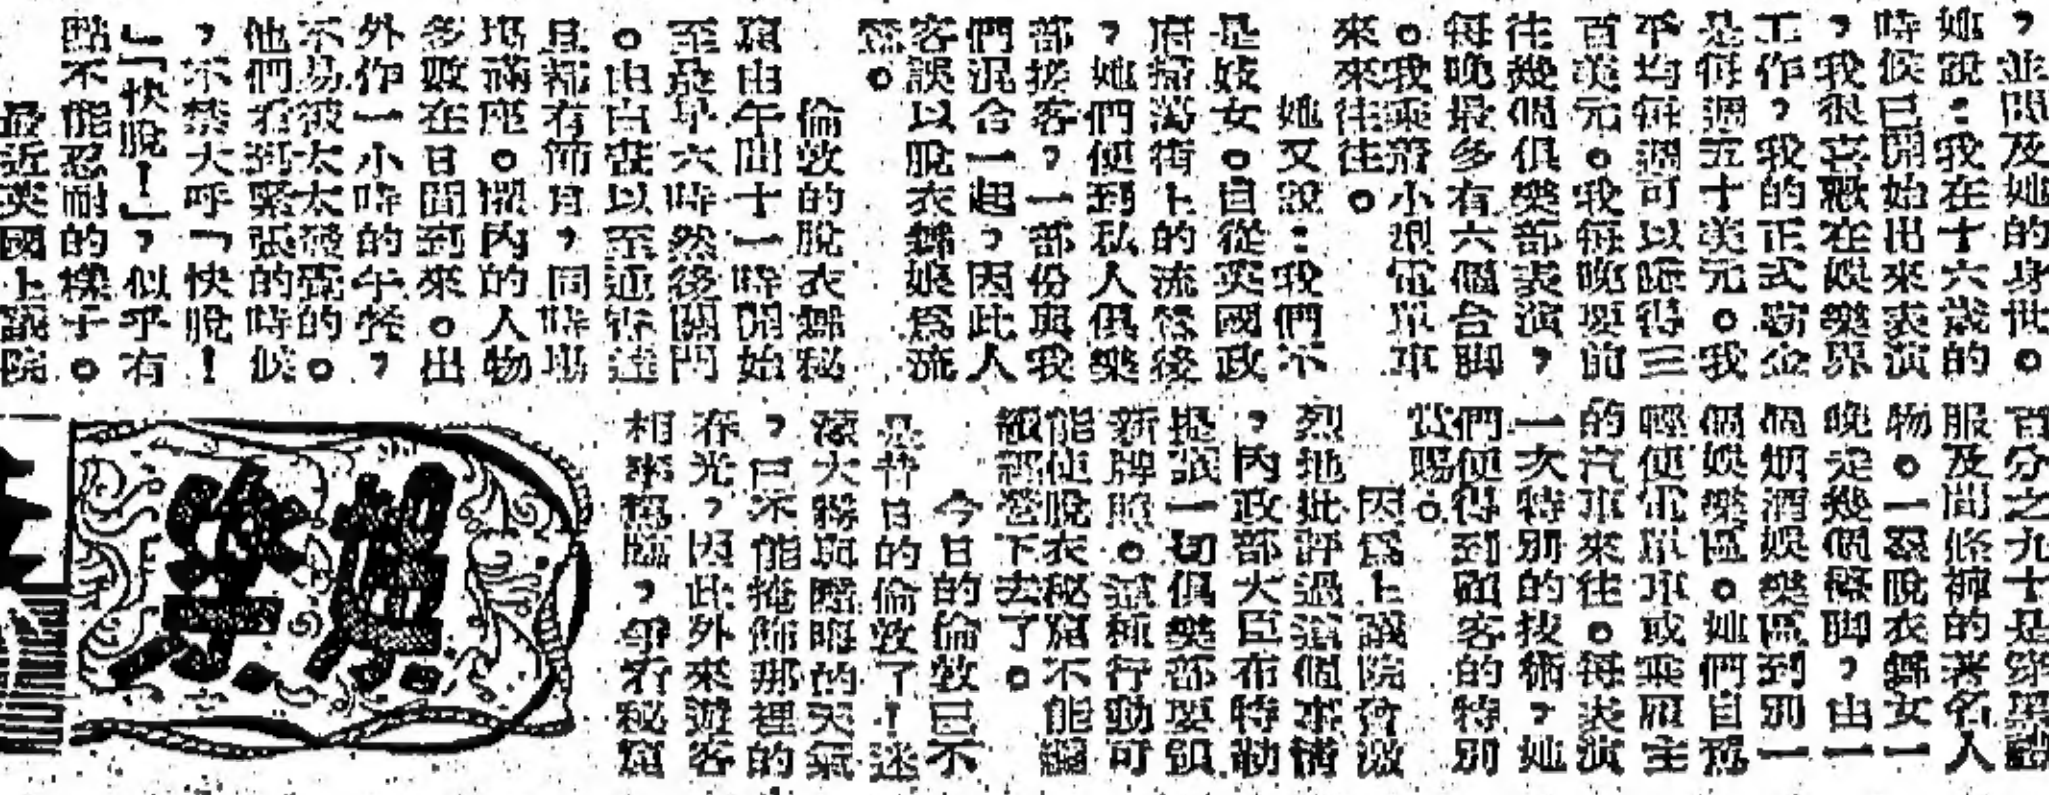 ，並問及她的身世。
她說：我在十六歲的
時候已開始出來表演
，我很喜歡在娛樂界
工作，我的正式薪金
是每週五十美元。我
平均每週可以賺得三
百美元。我每晚要前
往幾個俱樂部表演，
每晚最多有六個合脚
。我乘着小型電單車
來來往往。
她又說：我們不
是妓女。自從英國政
府掃蕩街上的流鶯後
，她們便到私人俱樂
部接客，一部份與我
們混合一起，因此人
客誤以脫衣舞娘爲流
鶯。
倫敦的脫衣舞秘
窟由午間十一時開始
至晨早六時然後關門
。由白晝以至通宵達
旦都有節目，同時場
場滿座。棚內的人物
多數在日間到來。出
外作一小時的午餐，
不易被太太發覺的。
他們看到緊張的時候
，不禁大呼「快脫！
」「快脫！」，似乎有
點不能忍耐的樣子。
最近英國上議院
百分之九十是穿黑禮
服及間條褲的著名人
物。一羣脫衣舞女一
晚走幾個檯脚，由一
個烟酒娛樂區到別一
個娛樂區。她們自駕
輕便電單車或乘雇主
的汽車來往。每表演
一次特別的技術，她
們便得到顧客的特別
賞賜。
因爲上議院曾激
烈地批評過這個事情
，內政部大臣布特勒
提議一切俱樂部要領
新牌照。這種行動可
能使脫衣秘窟不能繼
續經營下去了。
今日的倫敦已不
是昔日的倫敦了！迷
濛大霧與晦的天氣
，已不能掩飾那裡的
春光，因此外來遊客
相率臨，爭看秘窟